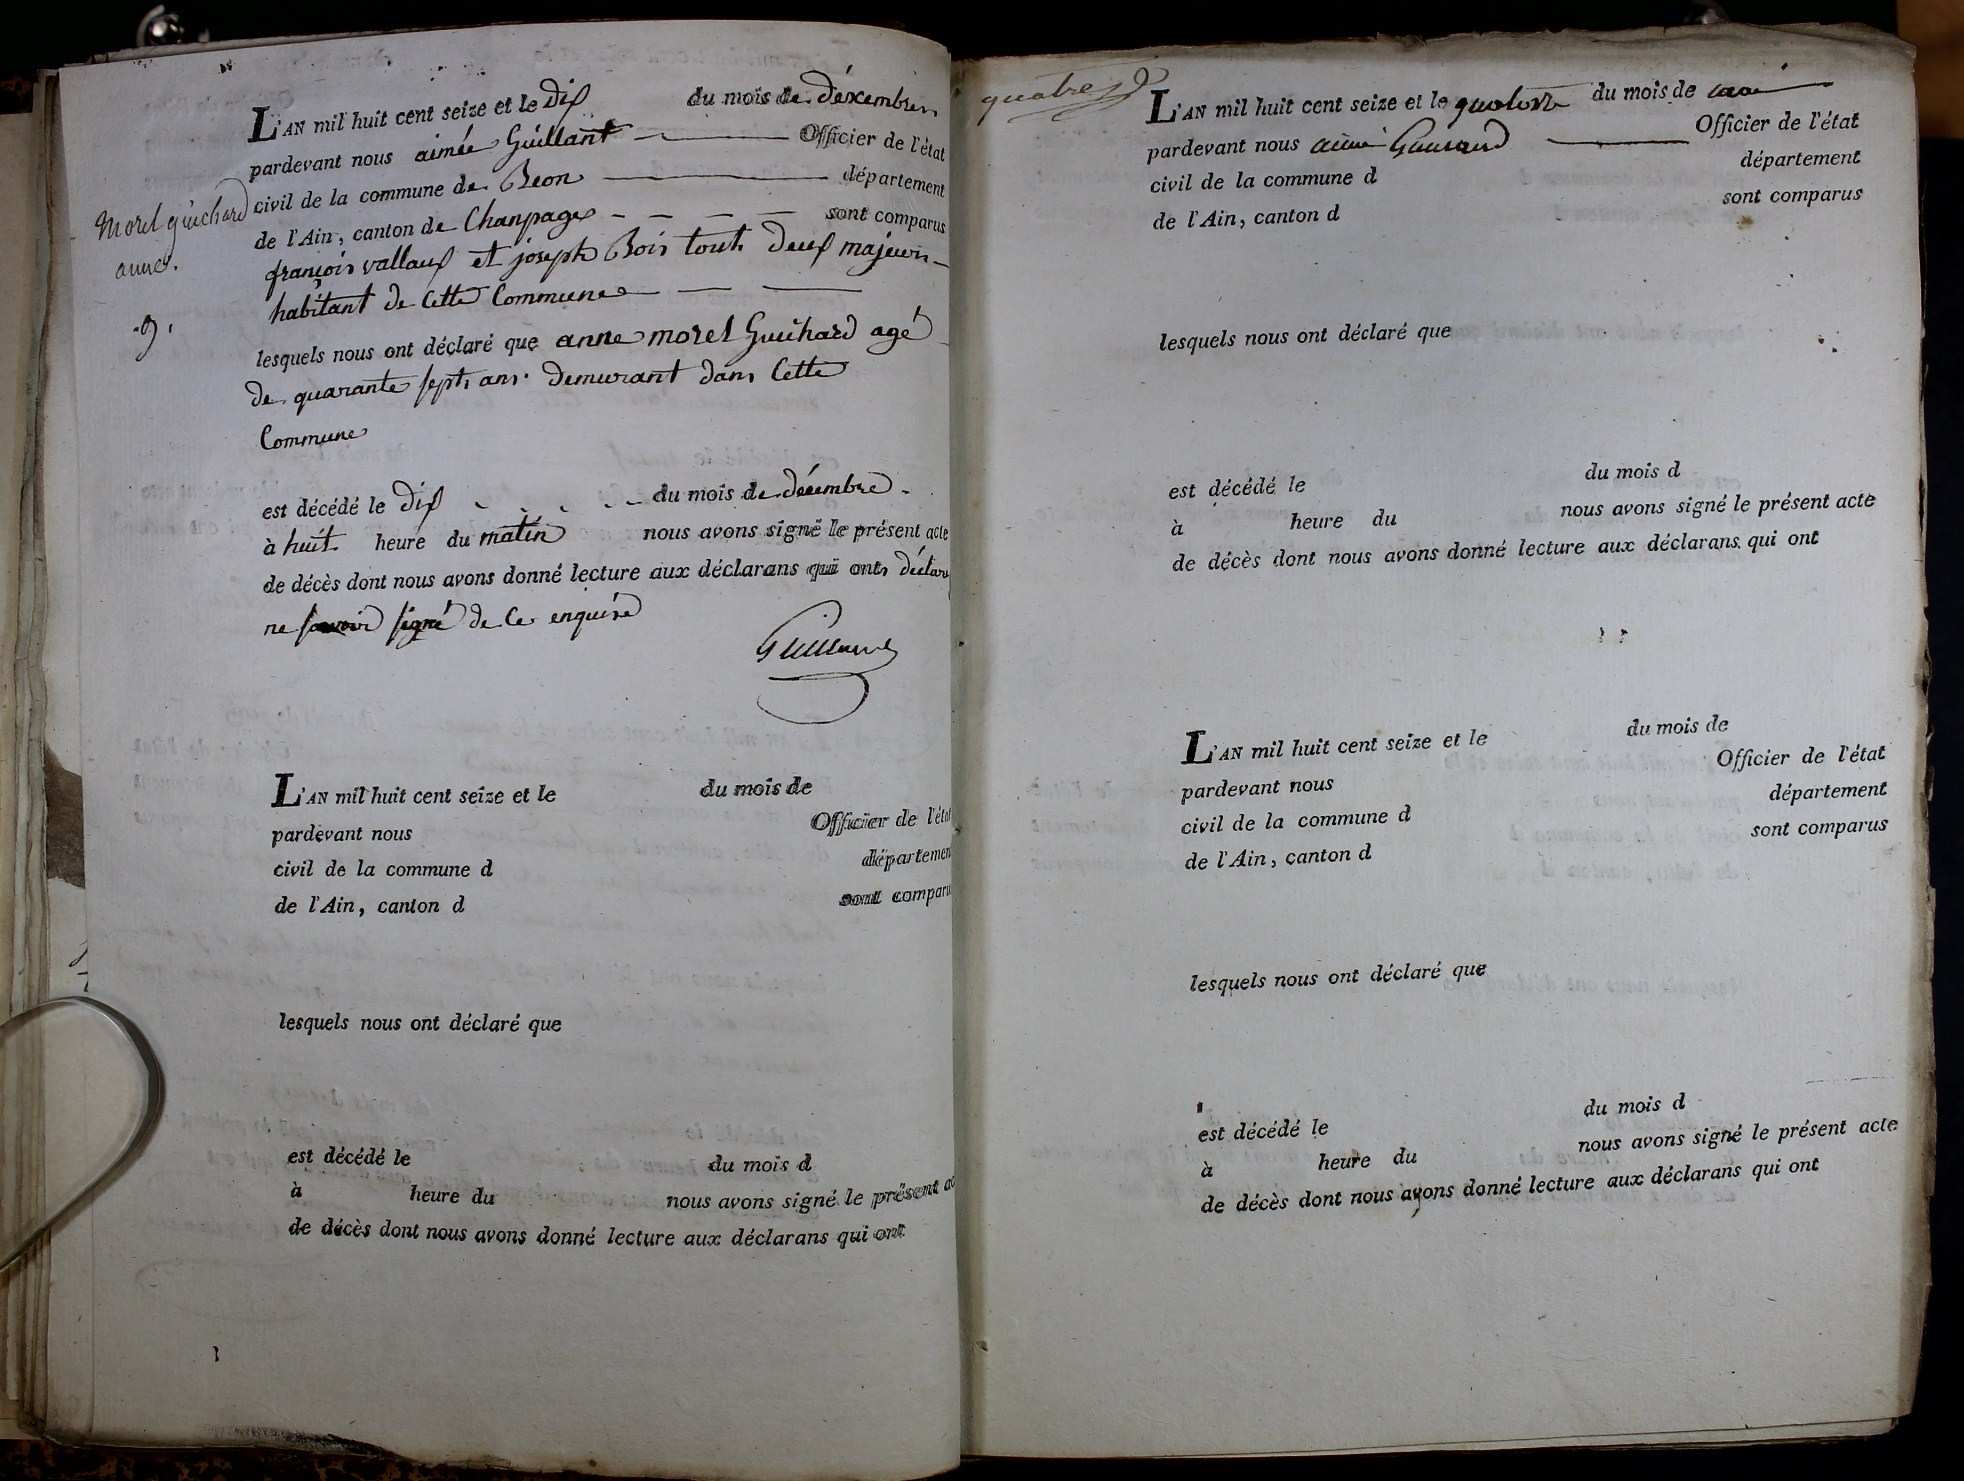 L'AN mil huit cent seize et le dix du mois de décembre
pardevant nous aimée Guillant Officier de l'état
civil de la commune de Béon département
de l'Ain, canton de Chanpagne sont comparus
Morel guichard
anne.
françois vallaux et joseph Bois touts deux majeurs
habitant de Cette Commune
.9.
lesquels nous ont déclaré que anne morel Guichard agé
de quarante sept ans. demeurant dans Cette
Commune
est décédé le dix du mois de décembre
à huit heure du matin nous avons signé le présent acte
de décès dont nous avons donné lecture aux déclarans qui ont déclaré
ne savoir signé de Ce enquise
L'AN mil huit cent seize et le du mois de
pardevant nous Officier de l'état
civil de la commune d département
de l'Ain, canton d sont comparus
lesquels nous ont déclaré que
est décédé le du mois d
à heure du nous avons signé le présent ac
de décès dont nous avons donné lecture aux déclarans qui ont
quatre
L'AN mil huit cent seize et le quatorze du mois de
pardevant nous aimé Officier de l'état
civil de la commune d département
de l'Ain, canton d sont comparus
lesquels nous ont déclaré que
est décédé le du mois d
à heure du nous avons signé le présent acte
de décès dont nous avons donné lecture aux déclarans qui ont
L'AN mil huit cent seize et le du mois de
pardevant nous Officier de l'état
civil de la commune d département
de l'Ain, canton d sont comparus
lesquels nous ont déclaré que
est décédé le du mois d
à heure du nous avons signé le présent acte
de décès dont nous avons donné lecture aux déclarans qui ont